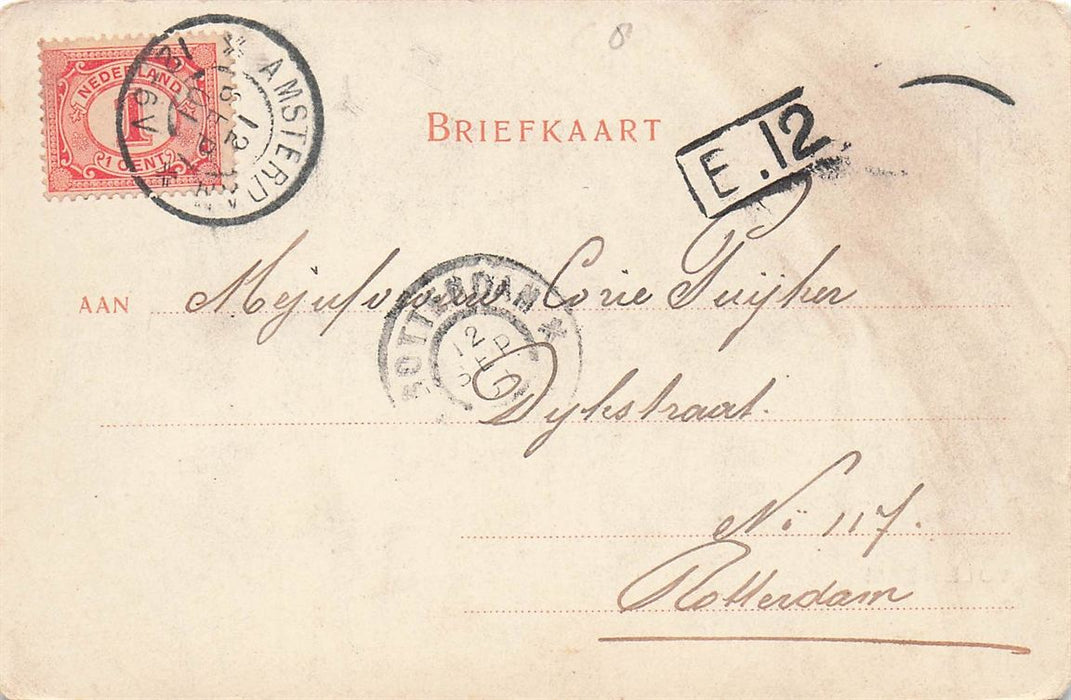 8
NEDERLAND
1
1 CENT
AMSTERDAM
12 SEP
BRIEFKAART
E.12
AAN Mejufvrouw Corie Tuijher
ROTTERDAM
12
SEP
Dykstraat.
No 117.
Rotterdam